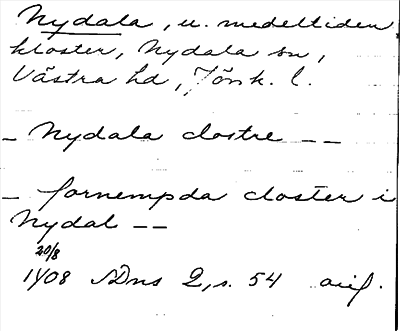 Nydala, u. medeltiden
kloster, Nydala sn,
Västra hd, Jönk. l.
_ Nydala clostre _ _
_ fornempda closter i
Nydal _ _
20/8
1408 SDns 2, s. 54